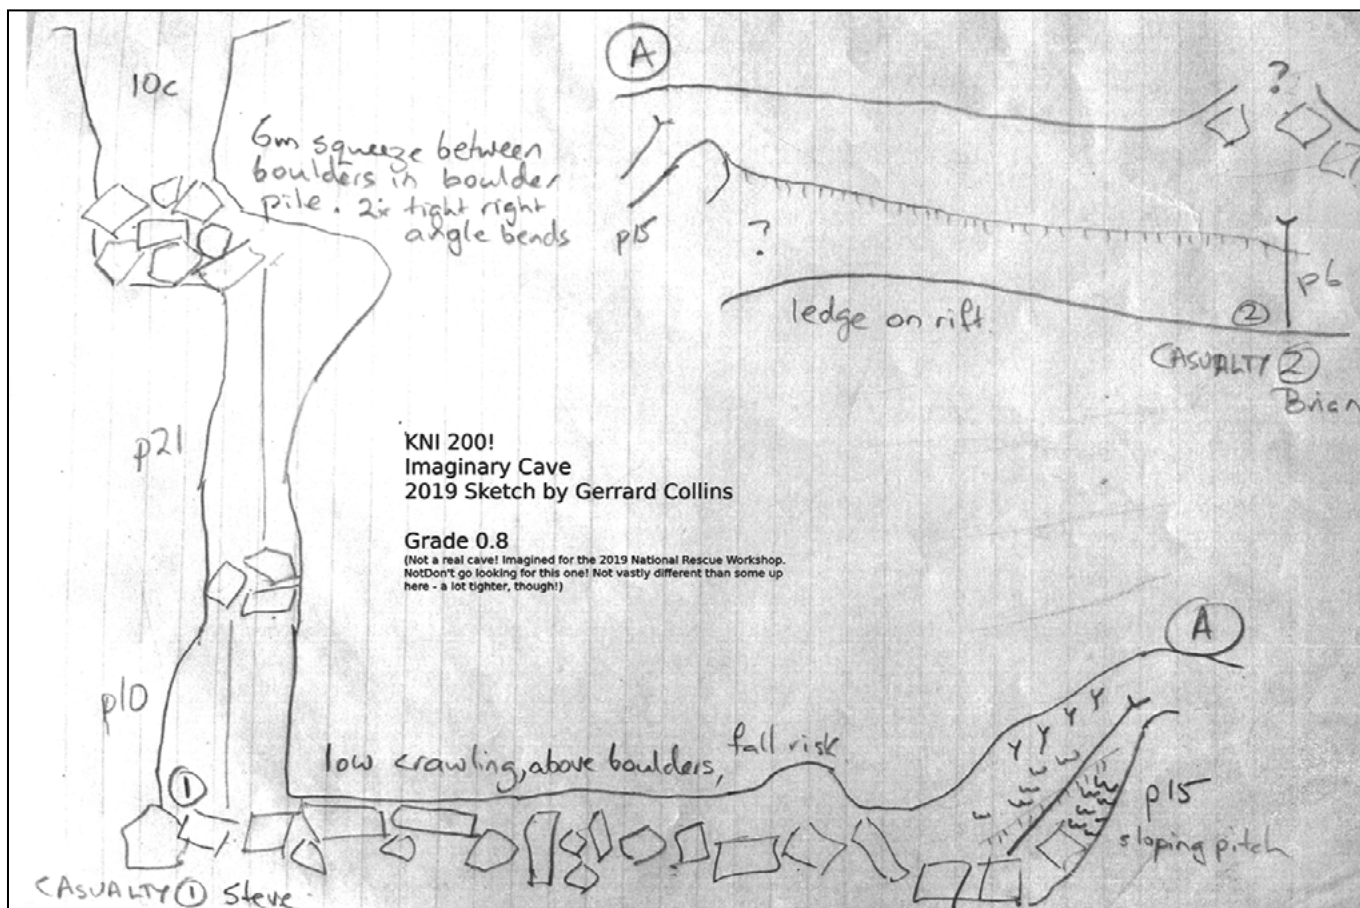 10c
6m squeeze between
boulders in boulder
pile. 2x tight right
angle bends
A
?
p15
?
ledge on rift.
p6
2
CASUALTY 2
Brian
p21
KNI 200!
Imaginary Cave
2019 Sketch by Gerrard Collins
Grade 0.8
(Not a real cave! Imagined for the 2019 National Rescue Workshop.
NotDon't go looking for this one! Not vastly different than some up
here - a lot tighter, though!)
A
p10
low crawling, above boulders, fall risk
1
p15
sloping pitch
CASUALTY 1 Steve